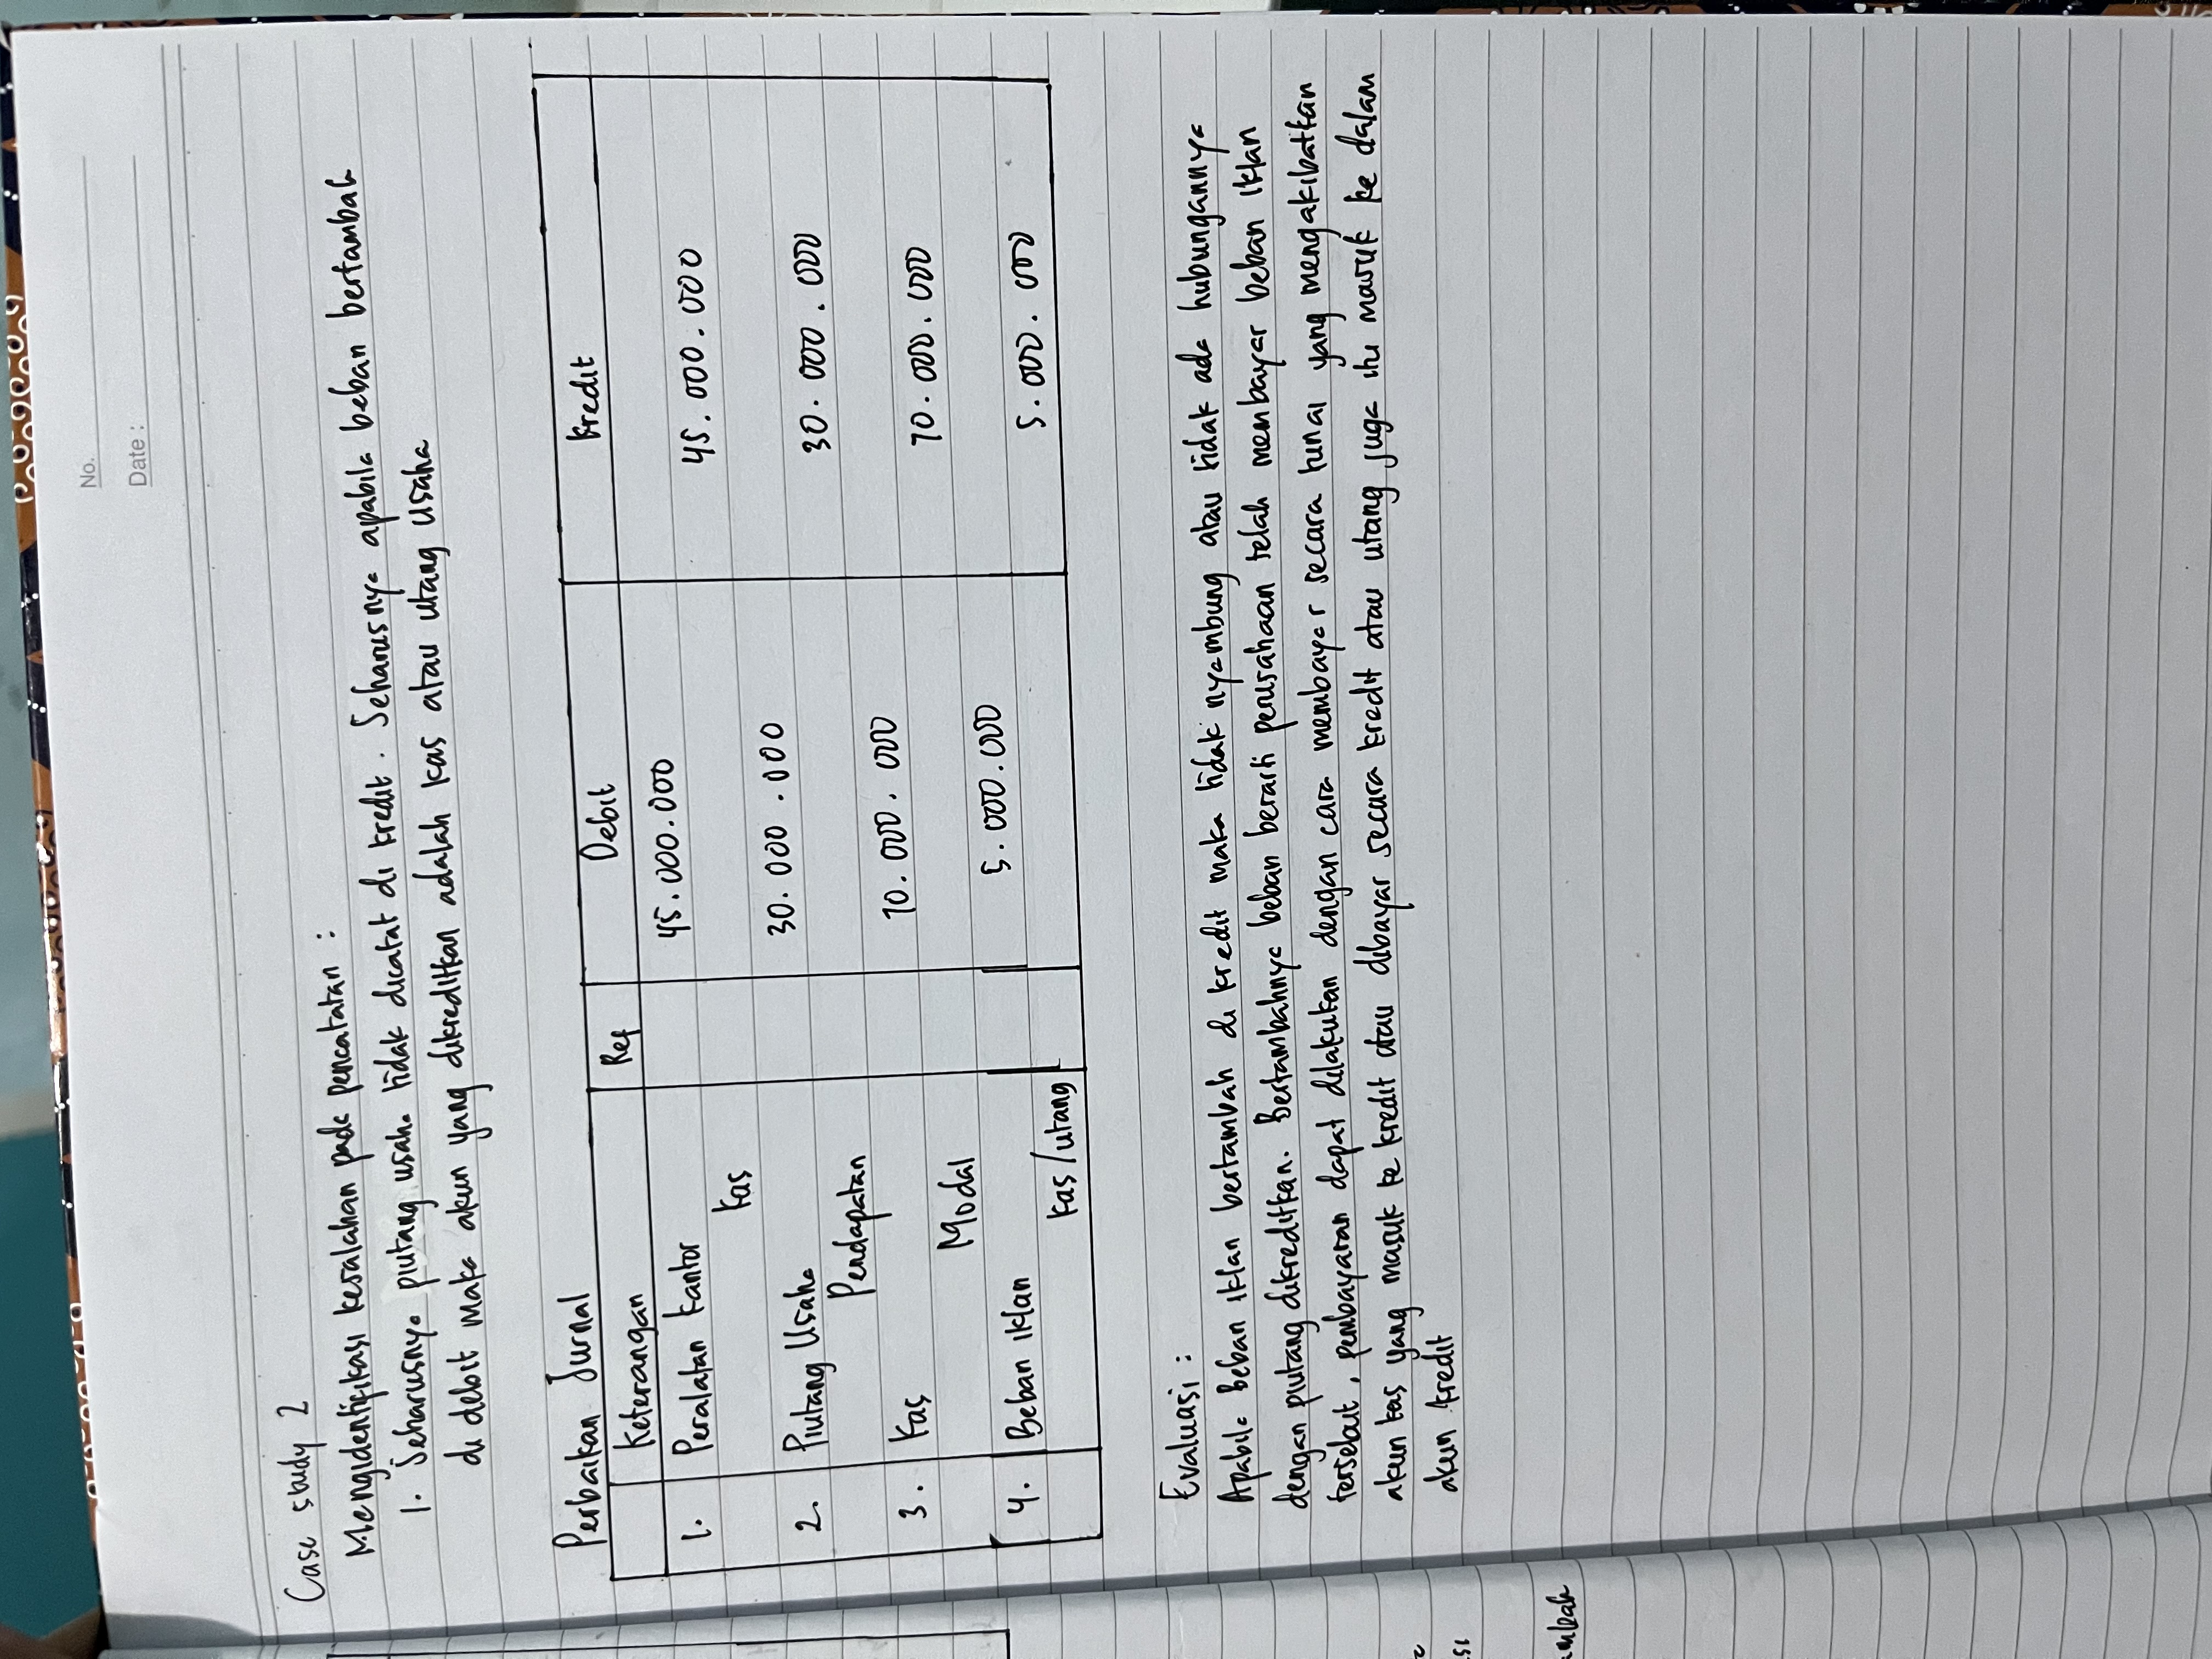 No.
Date :
Case study 2
Mengidentifikasi kesalahan pada pencatatan :
1. Seharusnya piutang usaha tidak dicatat di kredit. Seharusnya apabila beban bertambah
di debit maka akun yang dikreditkan adalah kas atau utang usaha
Perbaikan Jurnal
Keterangan Ref Debit Kredit
1. Peralatan kantor 45.000.000
Kas 45.000.000
2. Piutang Usaha 30.000.000
Pendapatan 30.000.000
3. Kas 70.000.000
Modal 70.000.000
4. Beban iklan 5.000.000
Kas/utang 5.000.000
Evaluasi :
Apabila beban iklan bertambah di kredit maka tidak nyambung atau tidak ada hubungannya
dengan piutang dikreditkan. Bertambahnya beban berarti perusahaan telah membayar beban iklan
tersebut, pembayaran dapat dilakukan dengan cara membayar secara tunai yang mengakibatkan
akun kas yang masuk ke kredit atau dibayar secara kredit atau utang juga itu masuk ke dalam
akun kredit